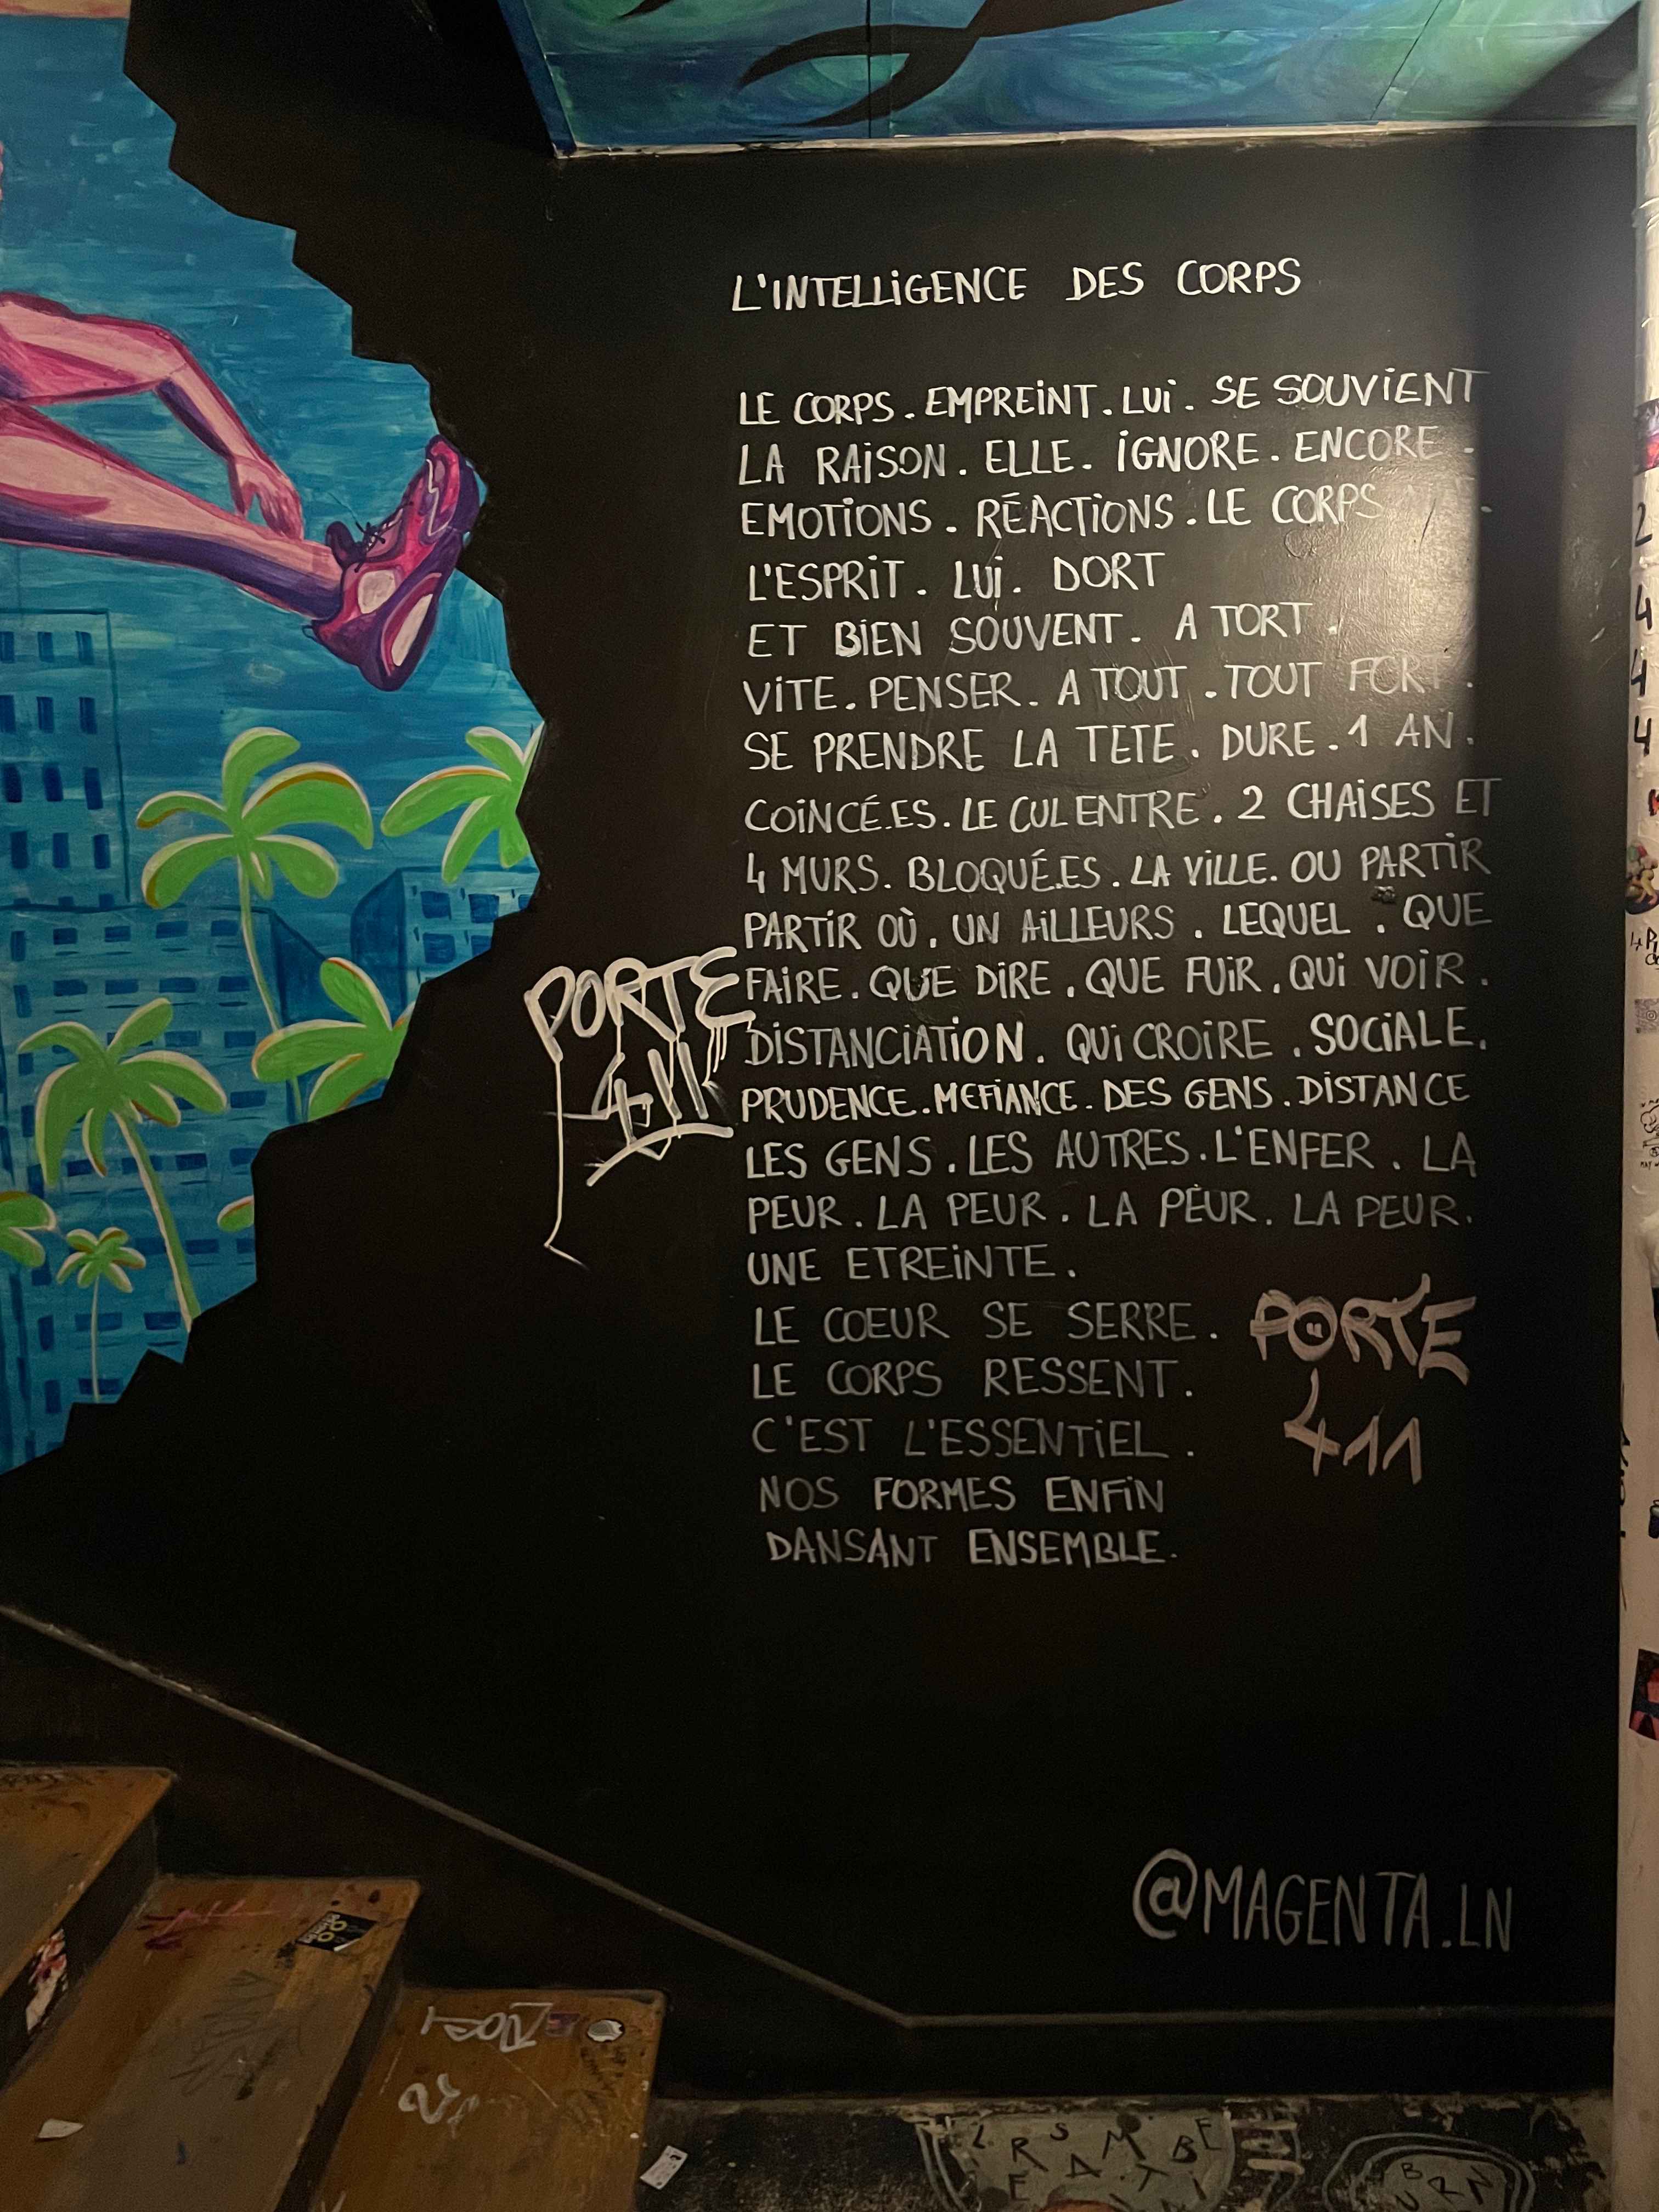 L'INTELLIGENCE DES CORPS
LE CORPS. EMPREINT. LUI. SE SOUVIENT
LA RAISON. ELLE. IGNORE. ENCORE.
EMOTIONS. RÉACTIONS. LE CORPS
L'ESPRIT. LUI. DORT
ET BIEN SOUVENT. A TORT.
VITE. PENSER. A TOUT. TOUT FORT.
SE PRENDRE LA TETE. DURE. 1 AN.
COINCÉ.ES. LE CUL ENTRE. 2 CHAISES ET
4 MURS. BLOQUÉ.ES. LA VILLE. OU PARTIR
PARTIR OÙ. UN AILLEURS. LEQUEL. QUE
FAIRE. QUE DIRE. QUE FUIR. QUI VOIR.
DISTANCIATION. QUI CROIRE. SOCIALE.
PRUDENCE. MEFIANCE. DES GENS. DISTANCE
LES GENS. LES AUTRES. L'ENFER. LA
PEUR. LA PEUR. LA PEUR. LA PEUR.
UNE ETREINTE.
LE COEUR SE SERRE.
LE CORPS RESSENT.
C'EST L'ESSENTIEL.
NOS FORMES ENFIN
DANSANT ENSEMBLE.
PORTE
411
PORTE
411
@MAGENTA.LN
2
4
4
4